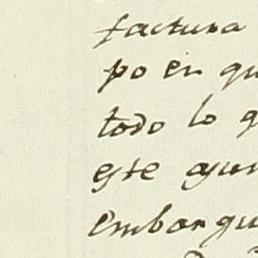 factura
po en qu
todo lo q
este ajun
embarqu